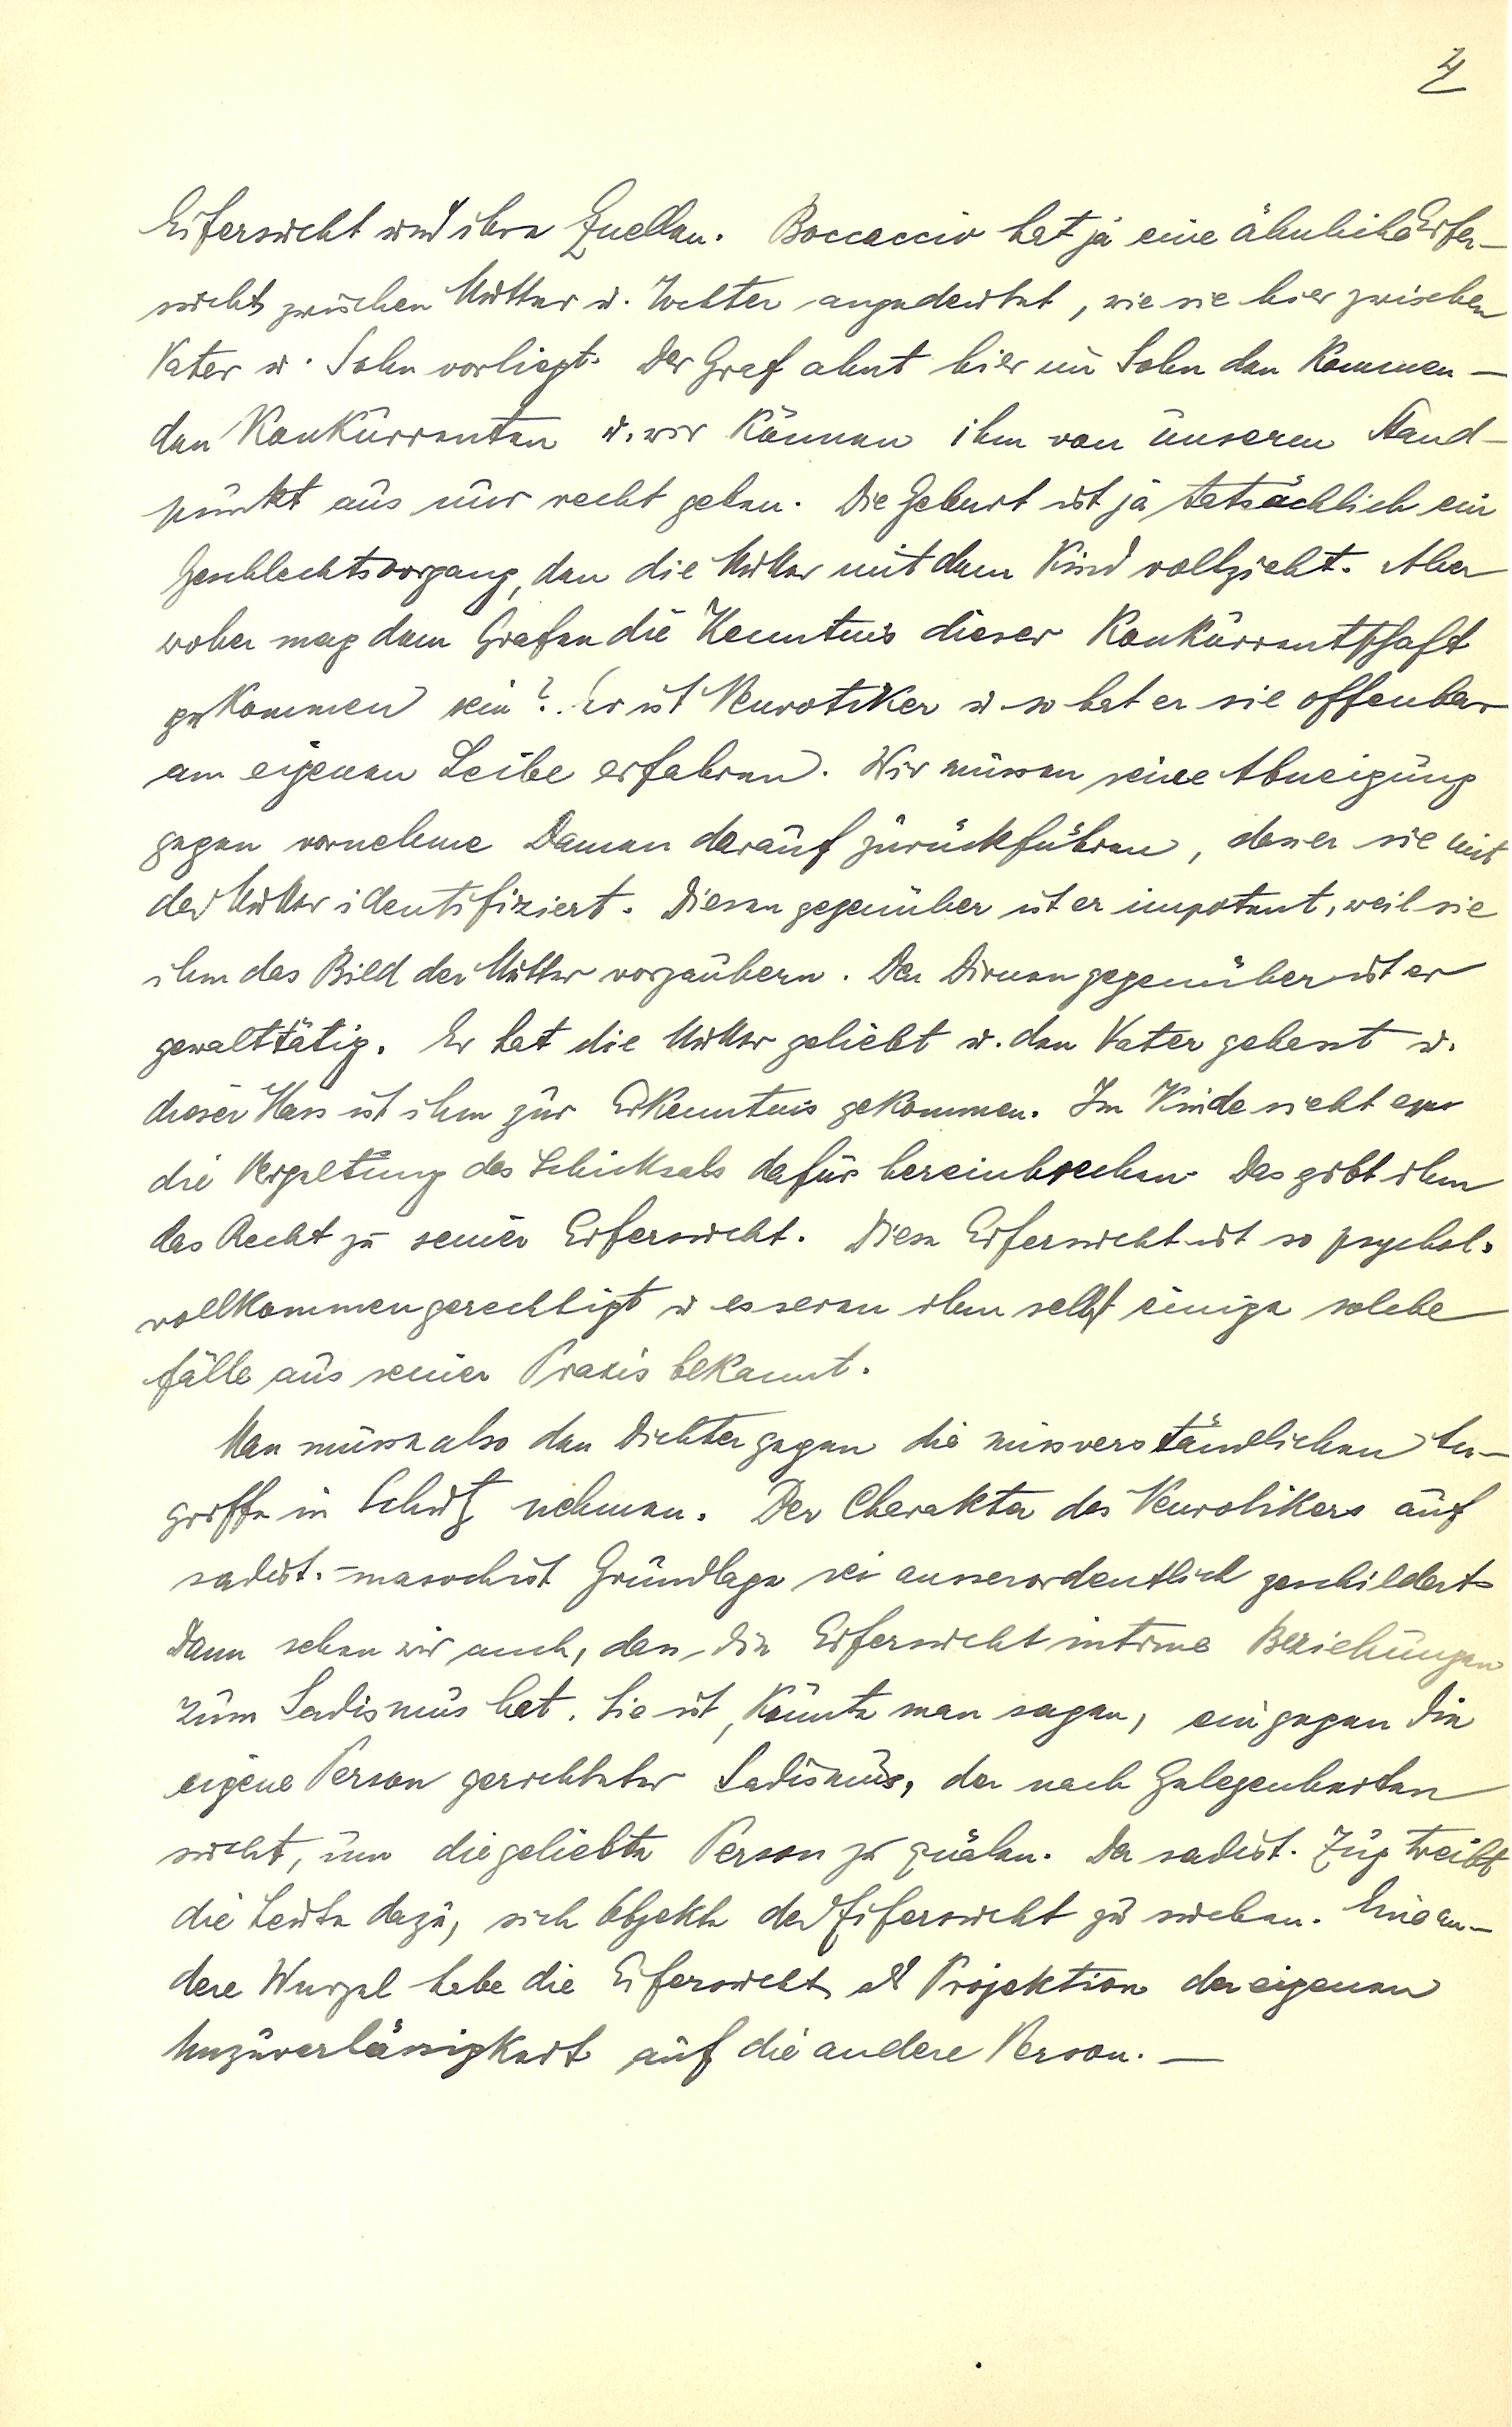 4
Eifersucht und ihre Quellen. Boccaccio hat ja eine ähnliche Eifer-
sucht zwischen Mutter u. Tochter angedeutet, wie sie hier zwischen
Vater u. Sohn vorliegt. Der Graf ahnt hier im Sohn den kommen-
den Konkurrenten u. wir können ihm von unserem Stand-
punkt aus nur recht geben. Die Geburt ist ja tatsächlich ein
Geschlechtsvorgang, den die Mutter mit dem Kind vollzieht. Aber
woher mag dem Grafen die Kenntnis dieser Konkurrentschaft
gekommen sein? Er ist Neurotiker u so hat er sie offenbar
am eigenen Leibe erfahren. Wir müssen seine Abneigung
gegen vornehme Damen darauf zurückführen, dass er sie mit
der Mutter identifiziert. Diesen gegenüber ist er impotent, weil sie
ihm das Bild der Mutter vorzaubern. Den Dirnen gegenüber ist er
gewalttätig. Er hat die Mutter geliebt u. den Vater gehasst u.
dieser Hass ist ihm zur Erkenntnis gekommen. Im Kinde sieht er
die Vergeltung des Schicksals dafür hereinbrechen. Das gibt ihm
das Recht zu seiner Eifersucht. Diese Eifersucht ist so psychol.
vollkommen gerechtigt u es seien ihm selbst einige solche
Fälle aus seiner Praxis bekannt.
Man müsse also den Dichter gegen die missverständlichen An-
griffe in Schutz nehmen. Der Charakter des Neurotikers auf
sadist.-masochist Grundlage sei ausserordentlich geschildert.
Dann sehen wir auch, dass die Eifersucht intime Beziehungen
zum Sadismus hat. Sie ist, könnte man sagen, ein gegen die
eigene Person gerichteter Sadismus, der nach Gelegenheiten
sucht, um die geliebte Person zu quälen. Der sadist. Zug treibt
die Leute dazu, sich Objekte der Eifersucht zu suchen. Eine an-
dere Wurzel habe die Eifersucht als Projektion der eigenen
Unzuverlässigkeit auf die andere Person. —